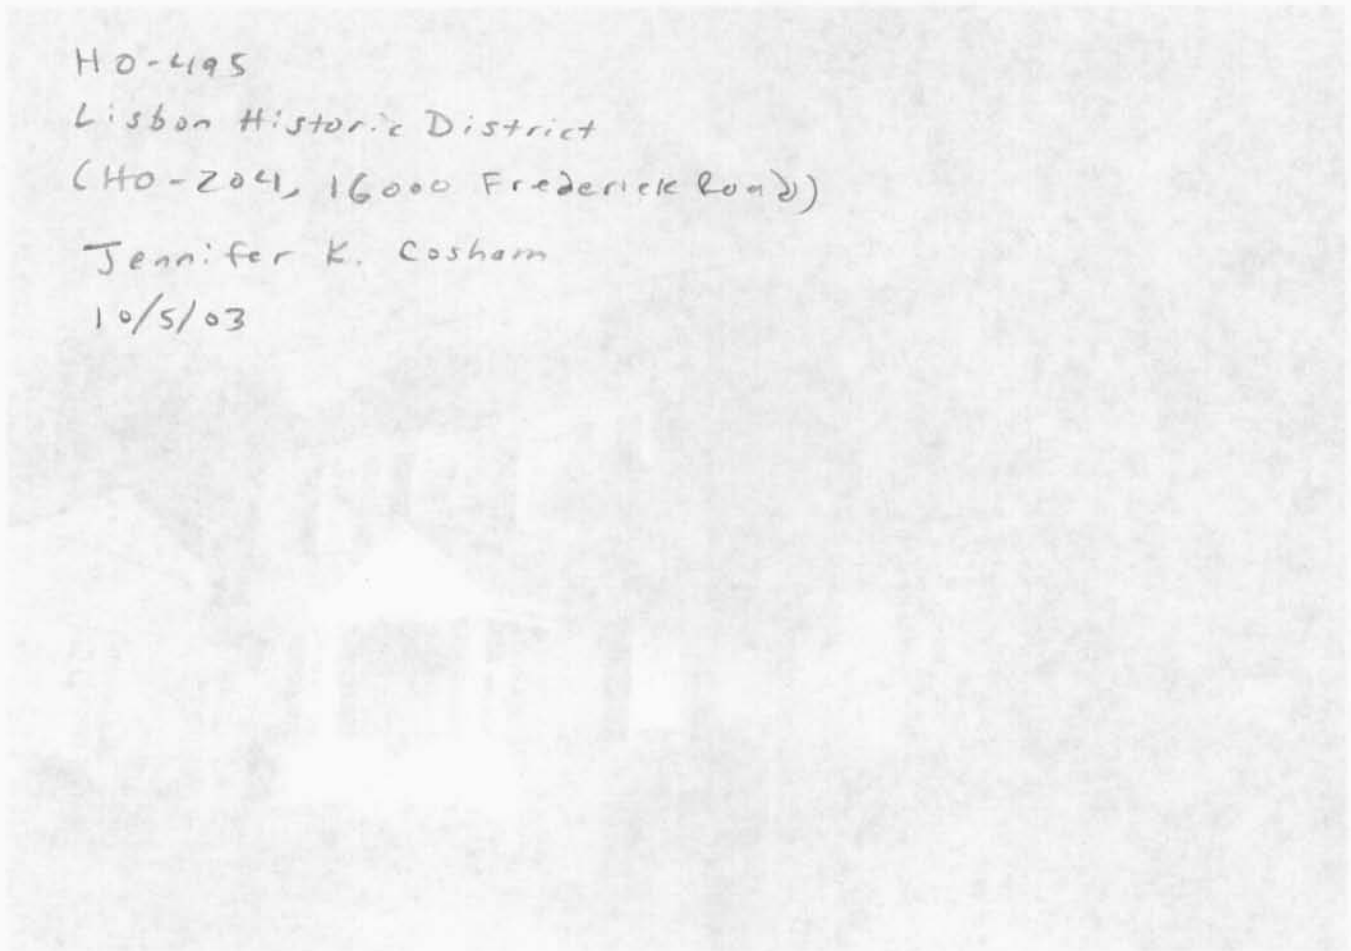 HO-495
Lisbon Historic District
(HO-204, 16000 Frederick Road)
Jennifer K. Cosham
10/5/03